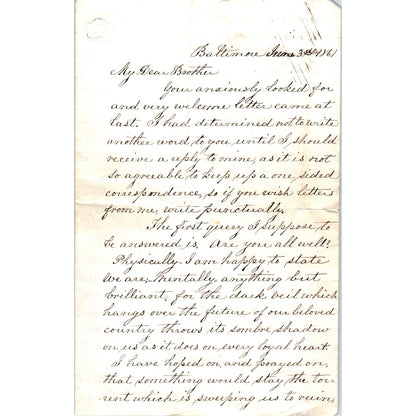 Baltimore June 3rd 1861
My Dear Brother
Your anxiously looked for
and very welcome letter came at
last. I had determined not to write
another word to you until I should
receive a reply to mine, as it is not
so agreeable to keep up a one sided
correspondence, so if you wish letters
from me, write punctually.
The first query I suppose to
be answered is, Are you all well?
Physically I am happy to state
we are, mentally anything but
brilliant, for the dark veil which
hangs over the future of our beloved
country throws its sombre shadow
on us as it does on every loyal heart.
I have hoped on, and prayed on,
that something would stay the tor-
rent which is sweeping us to ruin,